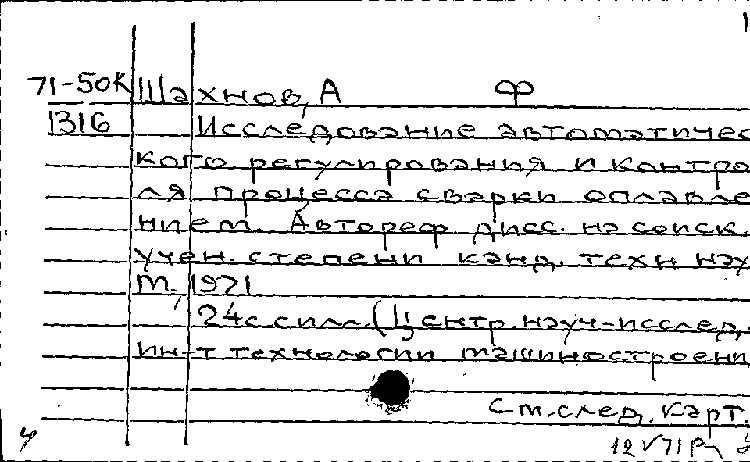 71-50К Шахнов, А Ф
1316 Исследование автоматичес
кого регулирования и контро
ля процесса сварки оплавле
нием. Автореф дисс. на соиск.
учен. степени канд. техн нау
М., 1971
24с с илл. (Центр. науч-исслед.
ин-т технологии машиностроени
См. след. карт.